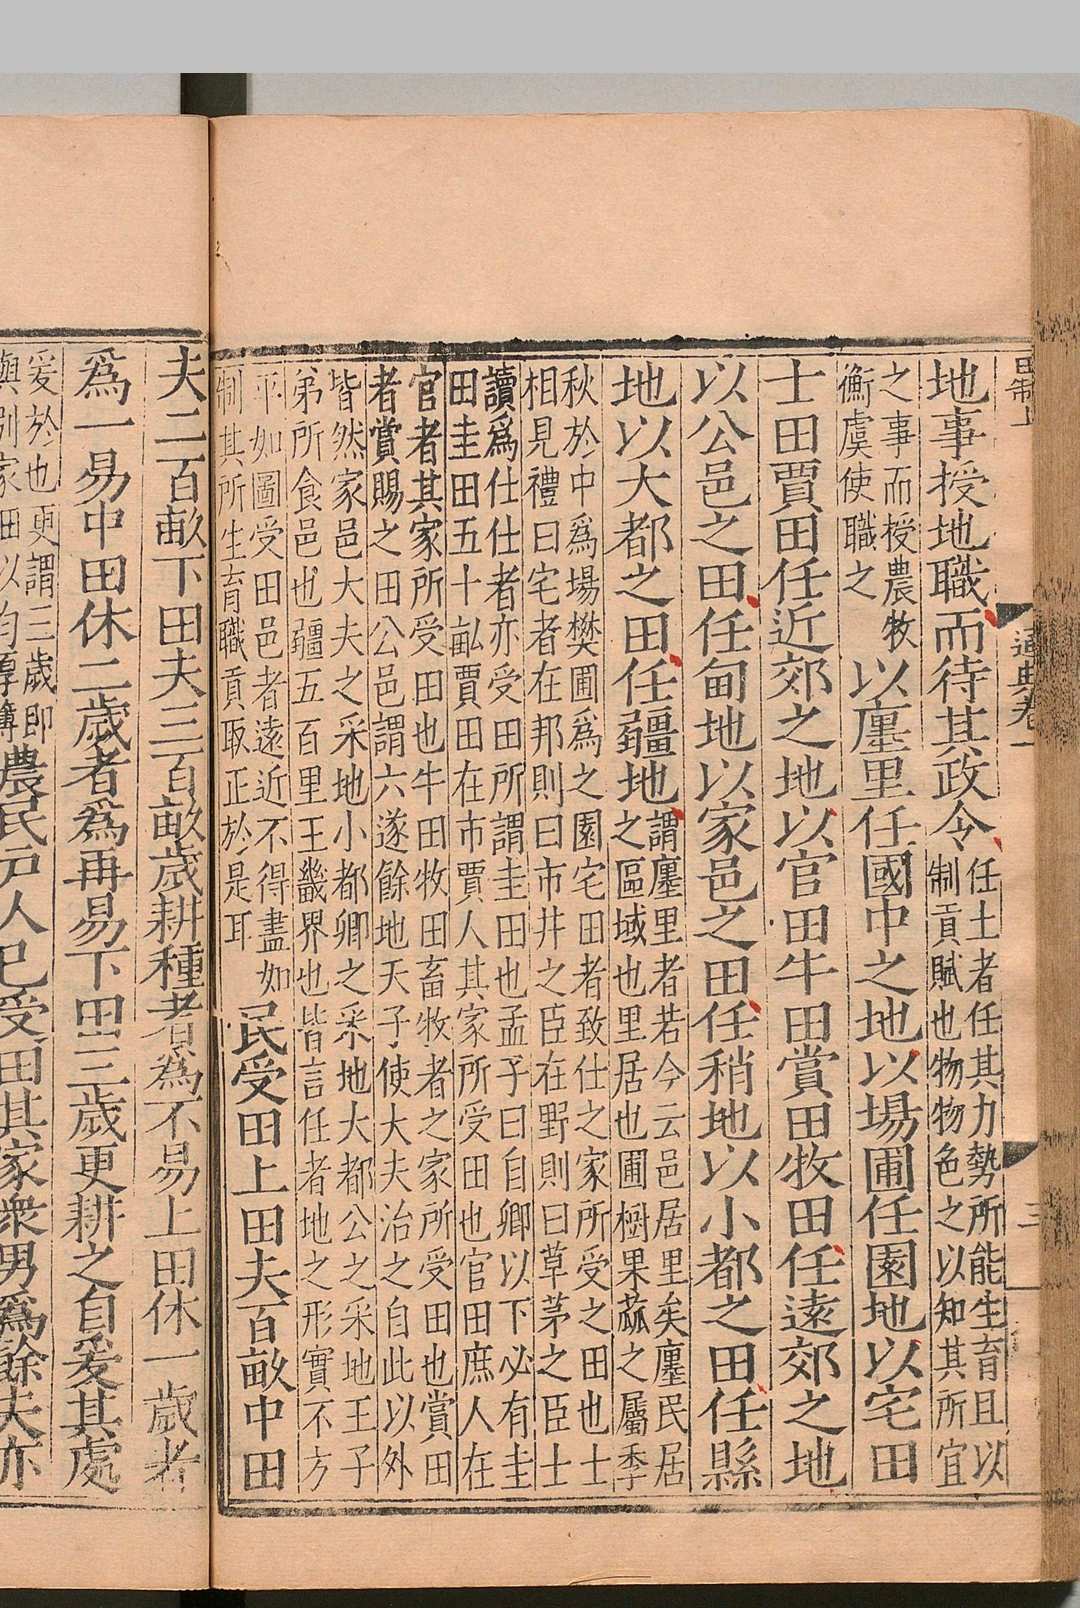 田制上
通典卷一
三
地事授地職而待其政令
任土者任其力勢所能生育且以
制貢賦也物物色之以知其所宜
之事而授農牧
衡虞使職之
以廛里任國中之地以場圃任園地以宅田
士田賈田任近郊之地以官田牛田賞田牧田任遠郊之地
以公邑之田任甸地以家邑之田任稍地以小都之田任縣
地以大都之田任疆地
謂廛里者若今云邑居里矣廛民居
之區域也里居也圃樹果蓏之屬季
秋於中爲場樊圃爲之園宅田者致仕之家所受之田也士
相見禮曰宅者在邦則曰市井之臣在野則曰草茅之臣士
讀爲仕仕者亦受田所謂圭田也孟子曰自卿以下必有圭
田圭田五十畝賈田在市賈人其家所受田也官田庶人在
官者其家所受田也牛田牧田畜牧者之家所受田也賞田
者賞賜之田公邑謂六遂餘地天子使大夫治之自此以外
皆然家邑大夫之采地小都卿之采地大都公之采地王子
弟所食邑也疆五百里王畿界也皆言任者地之形實不方
平如圖受田邑者遠近不得盡如
制其所生育職貢取正於是耳
民受田上田夫百畝中田
夫二百畝下田夫三百畝歲耕種者爲不易上田休一歲者
爲一易中田休二歲者爲再易下田三歲更耕之自爰其處
爰於也更謂三歲即
與別家田以均厚薄
農民戶人已受田其家衆男爲餘夫亦